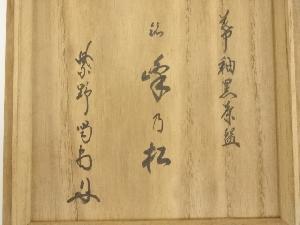 幕釉黒茶盌
銘 峰乃松
紫野